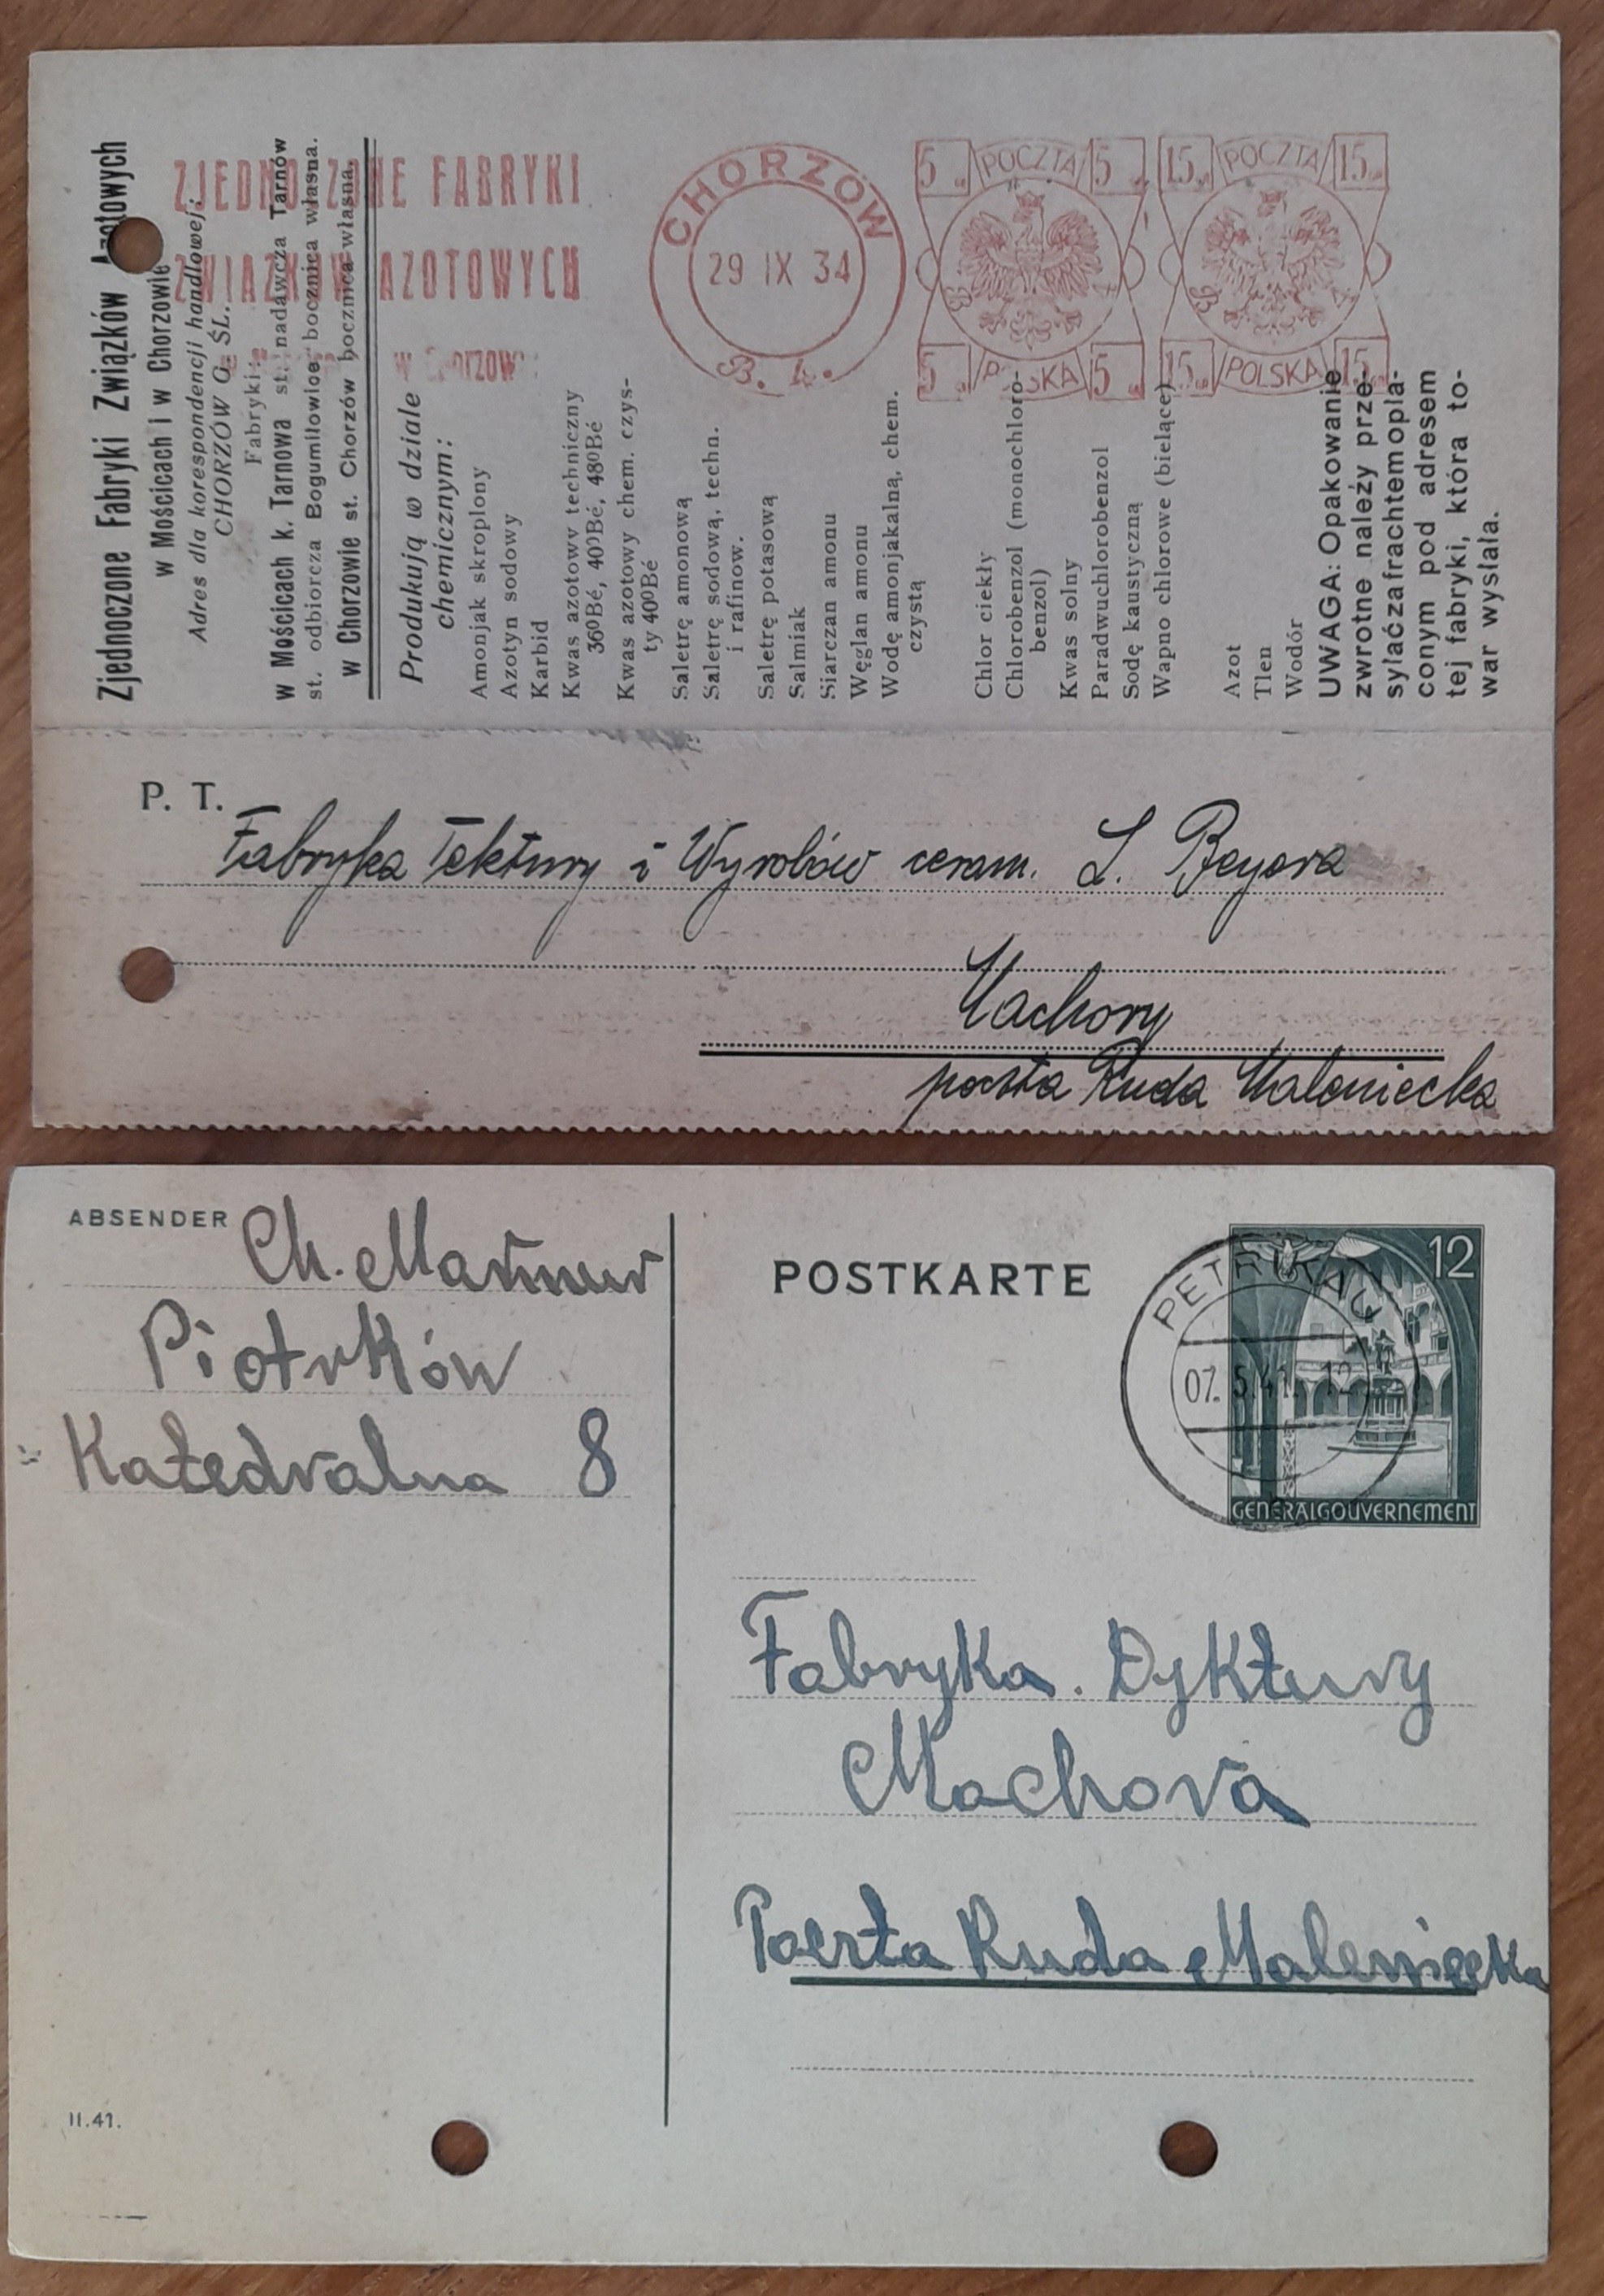 Zjednoczone Fabryki Związków Azotowych
w Mościcach i w Chorzowie
Adres dla korespondencji handlowej:
CHORZÓW G. ŚL.
Fabryki:
w Mościcach k. Tarnowa st. nadawcza Tarnów
st. odbiorcza Bogumiłowice bocznica własna.
w Chorzowie st. Chorzów bocznica własna.
ZJEDNOCZONE FABRYKI
ZWIĄZKÓW AZOTOWYCH
w Chorzowie
CHORZÓW
29 IX 34
5 POCZTA 5
5 POLSKA 5
15 POCZTA 15
15 POLSKA 15
Produkują w dziale
chemicznym:
Amonjak skroplony
Azotyn sodowy
Karbid
Kwas azotowy techniczny
36⁰Bé, 40⁰Bé, 48⁰Bé
Kwas azotowy chem. czys-
ty 40⁰Bé
Saletrę amonową
Saletrę sodową, techn.
i rafinow.
Saletrę potasową
Salmiak
Siarczan amonu
Węglan amonu
Wodę amonjakalną, chem.
czystą
Chlor ciekły
Chlorobenzol (monochloro-
benzol)
Kwas solny
Paradwuchlorobenzol
Sodę kaustyczną
Wapno chlorowe (bielące)
Azot
Tlen
Wodór
UWAGA: Opakowanie
zwrotne należy prze-
syłać za frachtem opła-
conym pod adresem
tej fabryki, która to-
war wysłała.
P. T.
Fabryka Tektury i Wyrobów ceram. L. Beyera
Machory
poczta Ruda Maleniecka
ABSENDER
Piotrków
Katedralna 8
POSTKARTE
PETRIKAU
07. 5.41. 12
12
GENERALGOUVERNEMENT
Fabryka. Dyktury
Machova
Poczta Ruda Maleniecka
II.41.